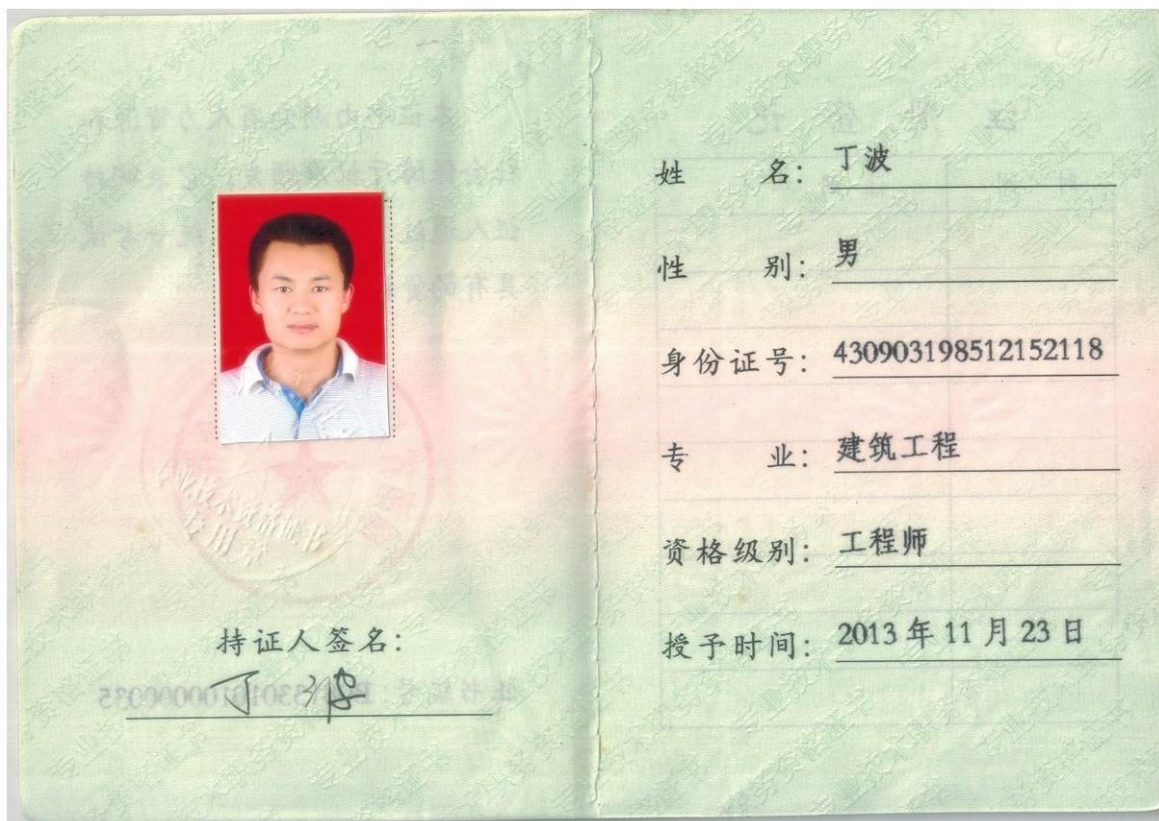 持证人签名:
丁波
姓 名: 丁波
性 别: 男
身份证号: 430903198512152118
专 业: 建筑工程
资格级别: 工程师
授予时间: 2013 年 11 月 23 日
专业技术资格证书
专用章